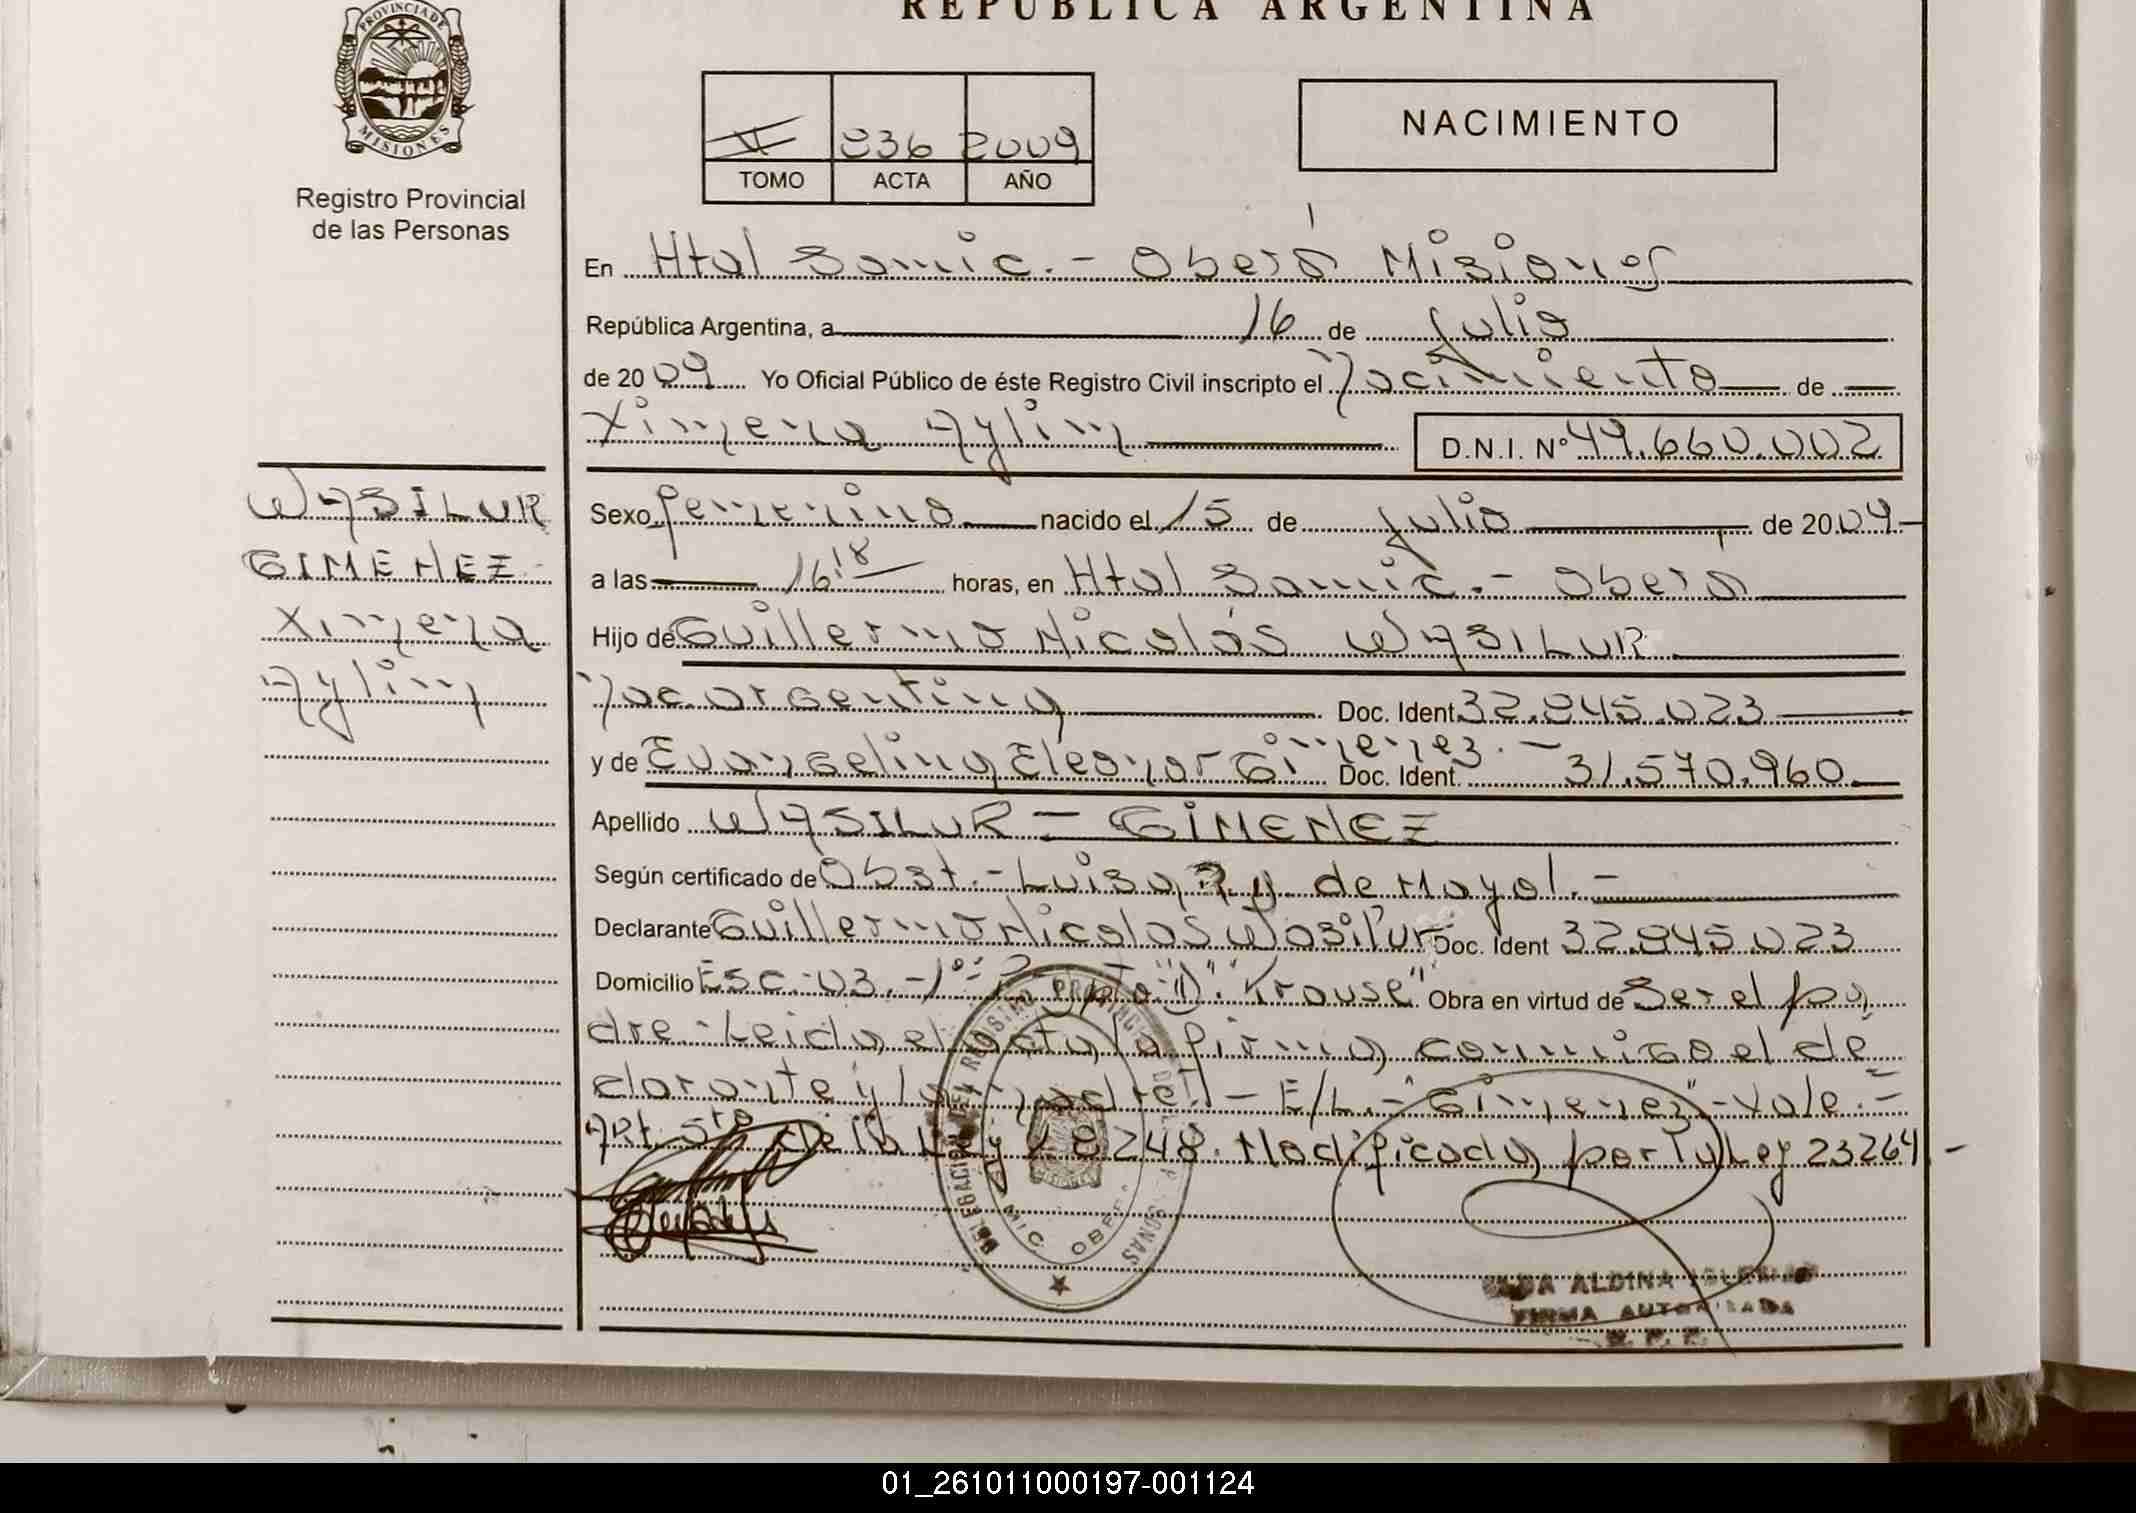 REPUBLICA ARGENTINA
PROVINCIA DE
MISIONES
Registro Provincial
de las Personas
II 836 2009
TOMO ACTA AÑO
NACIMIENTO
En Htal Samic.- Oberá Misiones
República Argentina, a 16 de Julio
de 2009 Yo Oficial Público de éste Registro Civil inscripto el Nacimiento de
Ximena Aylim
D.N.I. Nº 49.660.002
WASILUR
GIMENEZ.-
Ximena
Aylim
Sexo femenino nacido el 15 de Julio de 2009-
a las 16.18 horas, en Htal Samic.- Oberá
Hijo de Guillermo Nicolás WASILUR
Nac. argentina Doc. Ident. 32.845.023
y de Evangelina Eleonor Gimenez.- Doc. Ident. 31.570.960
Apellido WASILUR = GIMENEZ
Según certificado de Obst.- Luisa de Mayol.-
Declarante Guillermo Nicolas Wasilur Doc. Ident 32.845.023
Domicilio Esc.-03.-1º- "D". "Krause" Obra en virtud de Ser el pa
dre.-Leida el acta la firma conmigo el de
clarante y la madre.- E/L.- "Gimenez"-Vale.-
Art. 5to de la Ley 18248. Modificada por la Ley 23264.-
DELEGACION DEL REGISTRO PROVINCIAL DE LAS PERSONAS
SAMIC OBERA
ALDINA IGLESIAS
FIRMA AUTORIZADA
R. P. P.
01_261011000197-001124